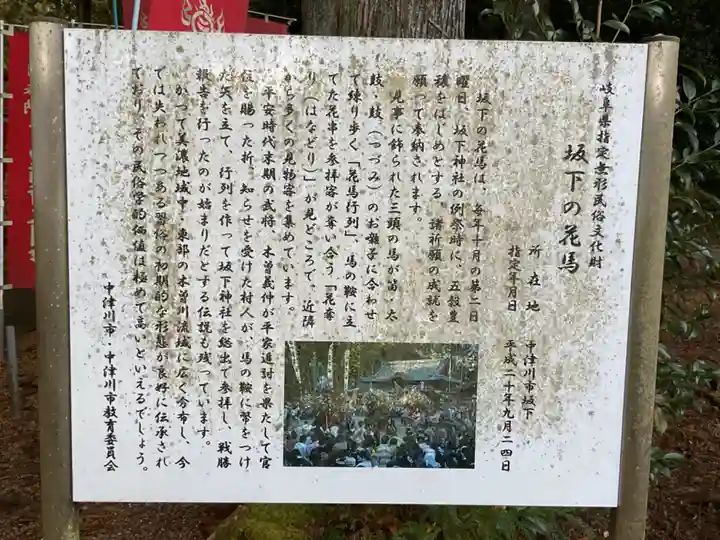 岐阜県指定無形民俗文化財
坂下の花馬
所在地　中津川市坂下
指定年月日　平成二十年九月二四日
坂下の花馬は、毎年十月の第二日
曜日、坂下神社の例祭時に、五穀豊
穣をはじめとする、諸祈願の成就を
願って奉納されます。
見事に飾られた三頭の馬が笛・太
鼓・鼓（つづみ）のお囃子に合わせ
て練り歩く「花馬行列」、馬の鞍に立
てた花串を参拝客が奪い合う「花奪
り（はなどり）」が見どころで、近隣
から多くの見物客を集めています。
平安時代末期の武将、木曽義仲が平家追討を果たして官
位を賜った折、知らせを受けた村人が、馬の鞍に幣をつけ
た矢を立て、行列を作って坂下神社を総出で参拝し、戦勝
報告を行ったのが始まりだとする伝説も残っています。
かつて美濃地域中・東部の木曽川流域に広く分布し、今
では失われつつある習俗の初期的な形態が良好に伝承され
ており、その民俗学的価値は極めて高いといえるでしょう。
中津川市・中津川市教育委員会